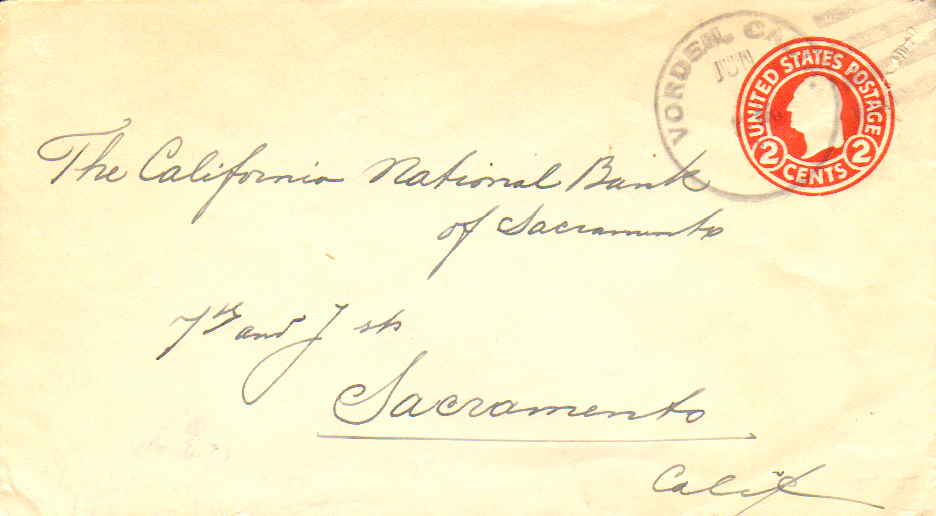 VORDEN, CA
JUN
UNITED STATES POSTAGE
2 CENTS 2
The California National Bank
of Sacramento
7th and J sts
Sacramento
Calif